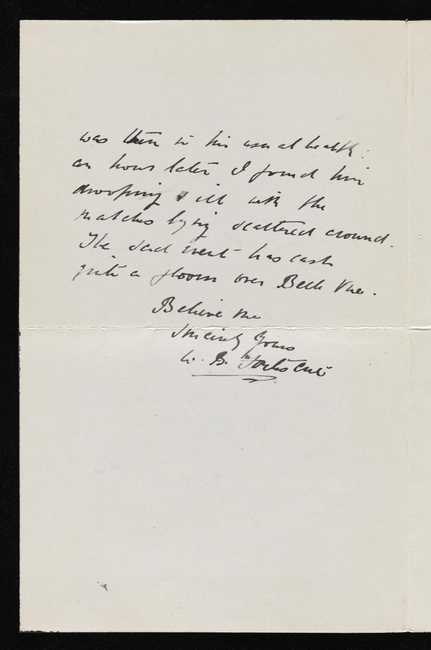 was then in his usual health:
an hour later I found him
drooping & ill with the
matches lying scattered around.
The sad event has cast
quite a gloom over Belle Vue.
Believe me
Sincerely Yours
W. B. Fortescue